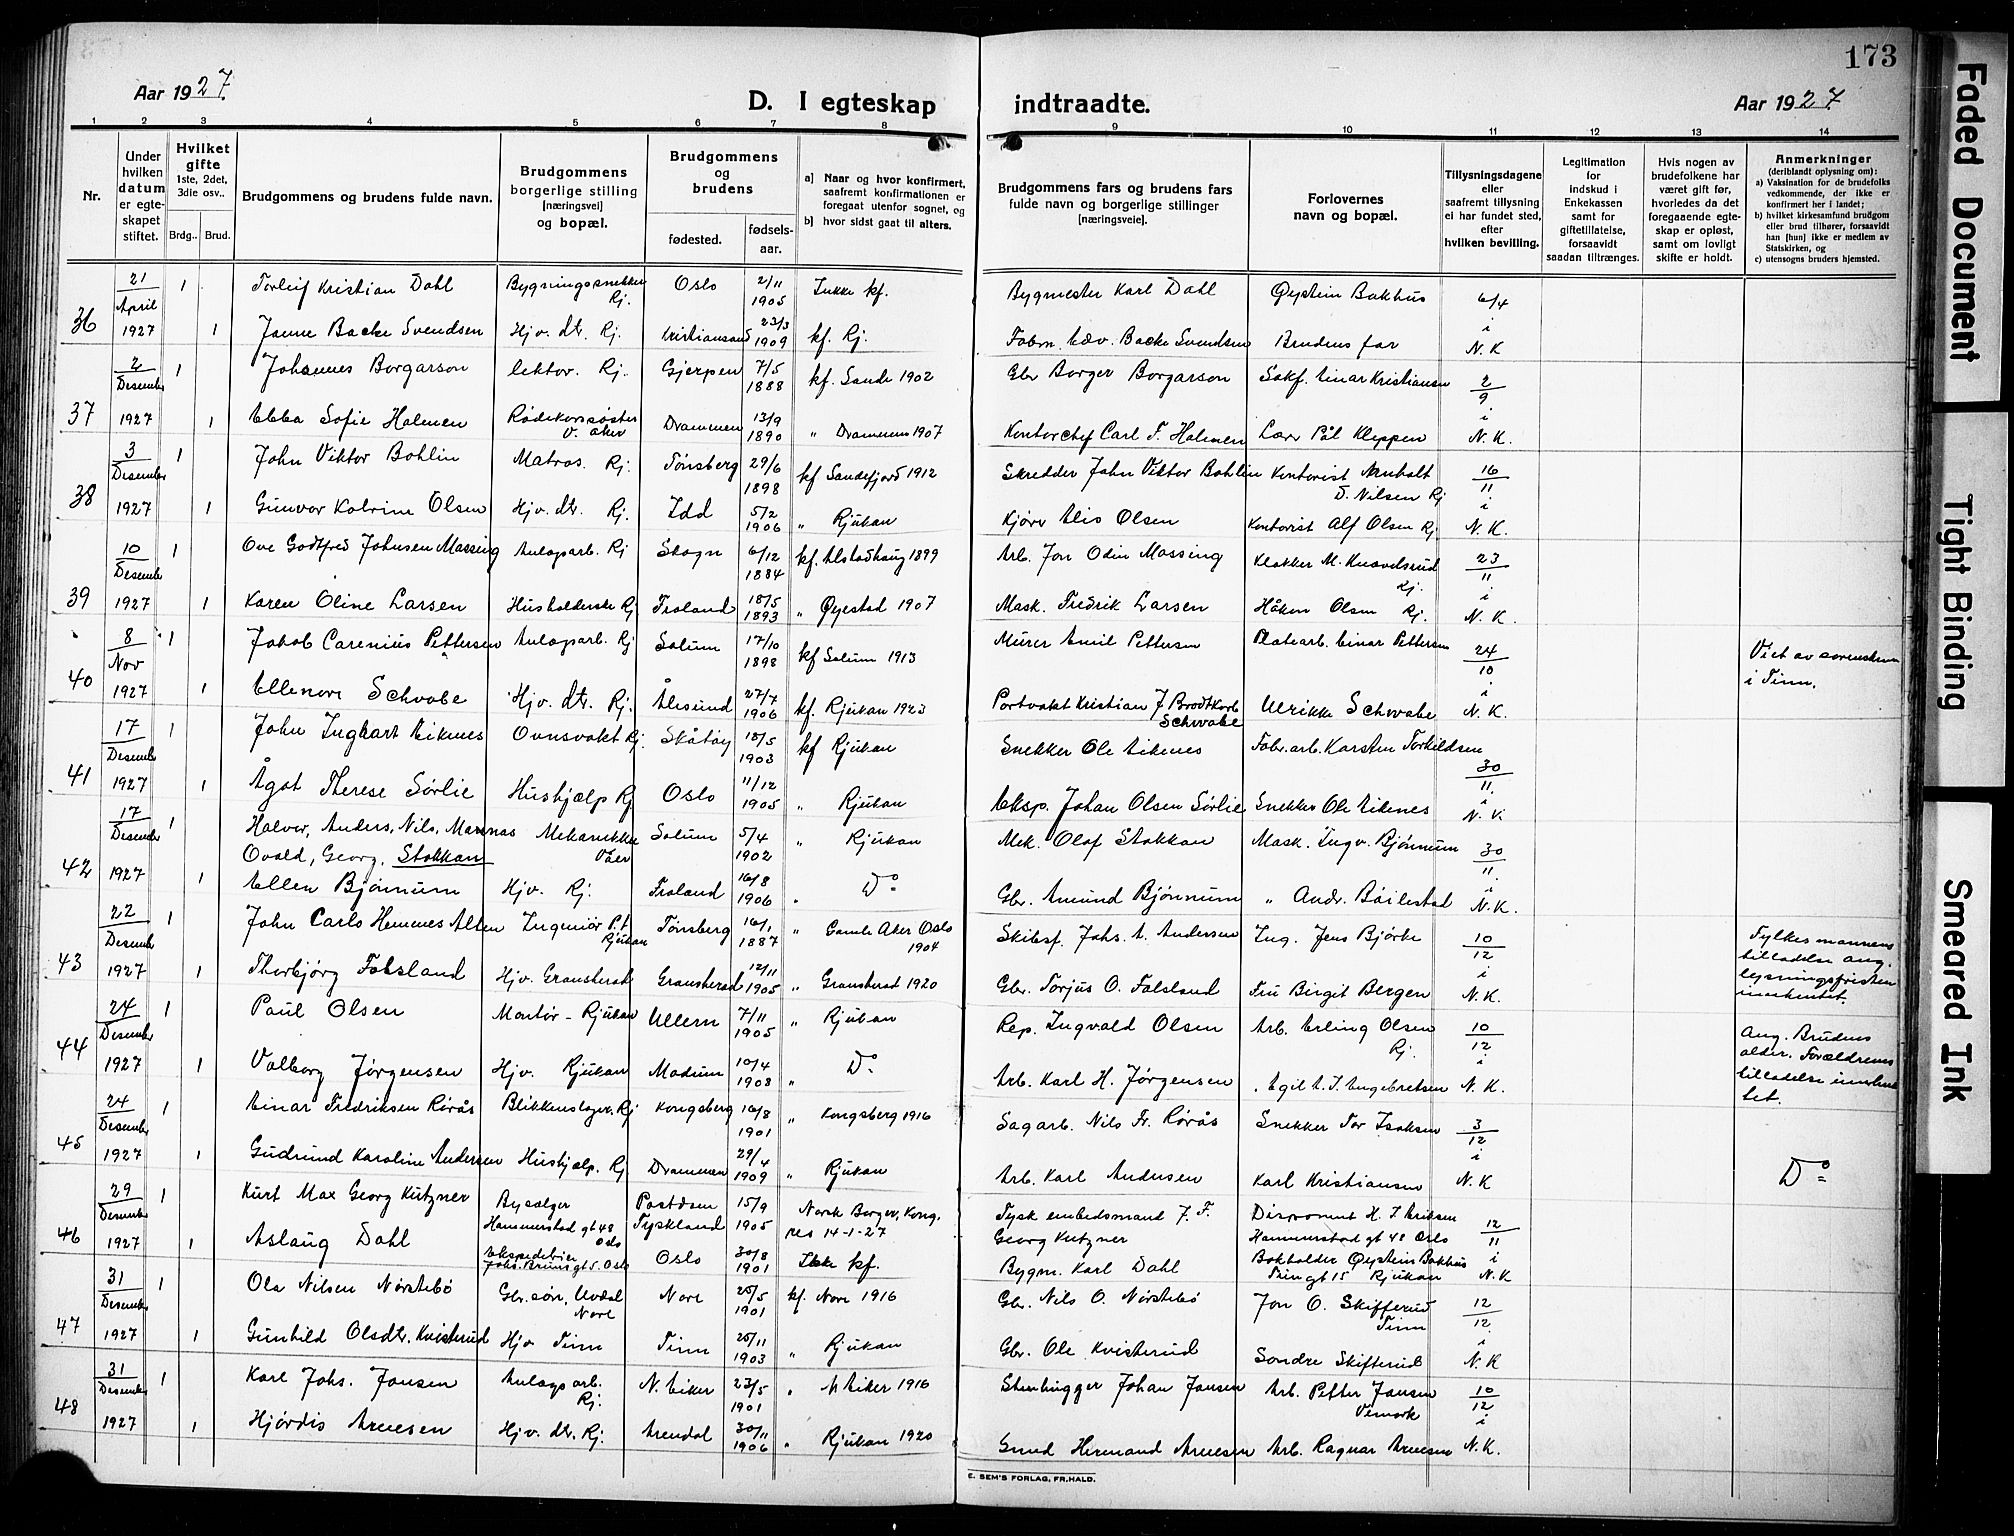 173
Aar 1927.
D. I egteskap indtraadte.
Aar 1927.
1 2 3 4 5 6 7 8 9 10 11 12 13 14
Nr.
Under hvilken datum er egteskapet stiftet.
Hvilket gifte 1ste, 2det, 3die osv..
Brdg.. Brud.
Brudgommens og brudens fulde navn.
Brudgommens borgerlige stilling [næringsvei] og bopæl.
Brudgommens og brudens
fødested.
fødselsaar.
a) Naar og hvor konfirmert, saafremt konfirmationen er foregaat utenfor sognet, og
b) hvor sidst gaat til alters.
Brudgommens fars og brudens fars fulde navn og borgerlige stillinger [næringsveie].
Forlovernes navn og bopæl.
Tillysningsdagene eller saafremt tillysning ei har fundet sted, efter hvilken bevilling.
Legitimation for indskud i Enkekassen samt for giftetillatelse, forsaavidt saadan tiltrænges.
Hvis nogen av brudefolkene har været gift før, hvorledes da det foregaaende egteskap er opløst, samt om lovligt skifte er holdt.
Anmerkninger (deriblandt oplysning om):
a) Vaksination for de brudefolks vedkommende, der ikke er konfirmert her i landet;
b) hvilket kirkesamfund brudgom eller brud tilhører, forsaavidt han [hun] ikke er medlem av Statskirken, og
c) utensogns bruders hjemsted.
36 21 April 1927 1 Torleif Kristian Dahl Bygningssnekker Rj. Oslo 2/11 1905 Ikke kf. Bygmester Karl Dahl Øystein Bakhus 6/4 i N.K
1 Janne Backe Svendsen Hjv. dtr. Rj. Kristiansand 23/3 1909 kf. Rj. Fabm. Edv. Backe Svendsen Brudens far
37 2 Desember 1927 1 Johannes Borgarson lektor. Rj. Gjerpen 7/5 1888 kf. Sande 1902 Gbr Borger Borgarson Sakf. Einar Kristiansen 2/9 i N.K.
1 Ebba Sofie Halmen Rødekorssøster V. Aker Drammen 13/9 1890 " Drammen 1907 Kontorchef Carl F. Halmen Lærr Pål Kleppen
38 3 Desember 1927 1 John Viktor Bohlin Matros. Rj. Tønsberg 29/6 1898 kf Sandefjord 1912 Skredder John Viktor Bohlin Kontorist Arnholt D. Nilsen Rj 16/11 i N.K.
1 Gunvor Katrine Olsen Hjv. dtr. Rj. Idd 5/2 1906 " Rjukan Kjørr Alis Olsen Kontorist Alf Olsen Rj
39 10 Desember 1927 1 Ove Godtfred Johnsen Massing Anlagsarb. Rj Skogn 6/12 1884 kf. Alstadhaug 1899 Arb. Jon Odin Massing Klokker M. Knavelsrud Rj. 23/11 i N.K.
1 Karen Oline Larsen Husholderske Rj Froland 18/5 1893 " Øyestad 1907 Mask. Fredrik Larsen Håkon Olsen Rj.
40 8 Nov 1927 1 Jakob Carenius Pettersen Anlagsarb. Rj Solum 17/10 1898 kf Solum 1913 Murer Emil Pettersen Platearb. Einar Pettersen 24/10 i N.K. Viet av sorenskrn i Tinn.
1 Ellenore Schwabe Hjv. dtr. Rj. Ålesund 27/7 1906 kf. Rjukan 1923 Portvakt Kristian J. Brodtkorb Schwabe Ulrikke Schwabe
41 17 Desember 1927 1 John Inghart Eikenes Ovnsvakt Rj. Skåtøy 18/5 1903 kf Rjukan Snekker Ole Eikenes Fabr.arb. Karsten Torkildsen 30/11. i N.K
1 Ågot Therese Sørlie Hushjælp Rj Oslo 11/12 1905 " Rjukan Eksp. Johan Olsen Sørlie Snekker Ole Eikenes
42 17 Desember 1927 1 Halvor, Anders, Nils, Marenas Ovald, Georg, Stokkan Mekanikker Våer Solum 5/4 1902 " Rjukan Mek. Olaf Stokkan Mask. Ingv. Bjønnum 30/11. i N.K.
1 Ellen Bjønnum Hjv. Rj. Froland 16/8 1906 " Do Gbr. Amund Bjønnum " Andr. Bøilestad
43 22 Desemb 1927 1 John Carlo Hemmes Alten Ingeniør P.t Rjukan Tønsberg 16/1 1887 " Gamle Aker Oslo 1904 Skibsf. Johs. A. Andersen Ing. Jens Bjørke 10/12 i N.K. Fylkesmannens tilladelse ang. lysningsfristen innhentet.
1 Thorbjørg Falsland Hjv. Gransherad Gransherad 12/11 1905 " Gransherad 1920 Gbr. Torjus O. Falsland Fru Birgit Bergen
44 24 Desember 1927 1 Paul Olsen Montør - Rjukan Ullern 7/11 1905 " Rjukan Rep. Ingvald Olsen Arb. Erling Olsen Rj. 10/12 i N.K. Ang. Brudens alder. Forældrens tilladelse innhentet.
1 Valborg Jørgensen Hjv. Rjukan Modum 10/4 1908 " Do Arb. Karl H. Jørgensen Egil A. I. Engebretsen
45 24 Desember 1927 1 Einar Fredriksen Rørås Blikkenslager. Rj Kongsberg 16/8 1901 " Kongsberg 1916 Sagarb. Nils Fr. Rørås Snekker Tor Isaksen 3/12 i N.K Do
1 Gudrund Karoline Andersen Hushjælp. Rj Drammen 29/4 1909 " Rjukan Arb. Karl Andersen Karl Kristiansen
46 29 Desember 1927 1 Kurt Max Georg Kutzner Bysælger Hammerstad gt 48 Oslo Postdam Tyskland 15/9 1905 Norsk Borger, Kong. res 14-1-27 Tysk embedsmand J. F. Georg Kutzner Disponent H. J Eriksen Hammerstad gt 48 Oslo 12/11 i N.K
1 Aslaug Dahl Johs. Brunsgt 5. Oslo Oslo 30/8 1901 Ikke kf. Bygm. Karl Dahl Bokholder Øystein Bakhus Tinngt 15 Rjukan
47 31 Desember 1927 1 Ola Nilsen Nørstebø Gbr.søn, Uvdal Nore Nore 25/5 1901 kf. Nore 1916 Gbr. Nils O. Nørstebø Jon O. Skifterud Tinn 12/12. i N.K
1 Gunhild Olsdtr. Kvisterud Hjv Tinn Tinn 25/11 1903 " Rjukan Gbr. Ole Kvisterud Sondre Skifterud
48 31 Desember 1927 1 Karl Johs. Jansen Anlagsarb. Rj. N. Eiker 23/5 1901 " N Eiker 1916 Stenhugger Johan Jansen Arb. Petter Jansen Vemork 10/12 i N.K.
1 Hjørdis Arnesen Hjv. dtr. Rj. Arendal 30/11 1906 " Rjukan 1920 Smed Hermand Arnesen Arb. Ragnar Arnesen
E. SEM'S FORLAG, FR.HALD.
Faded Document
Tight Binding
Smeared Ink